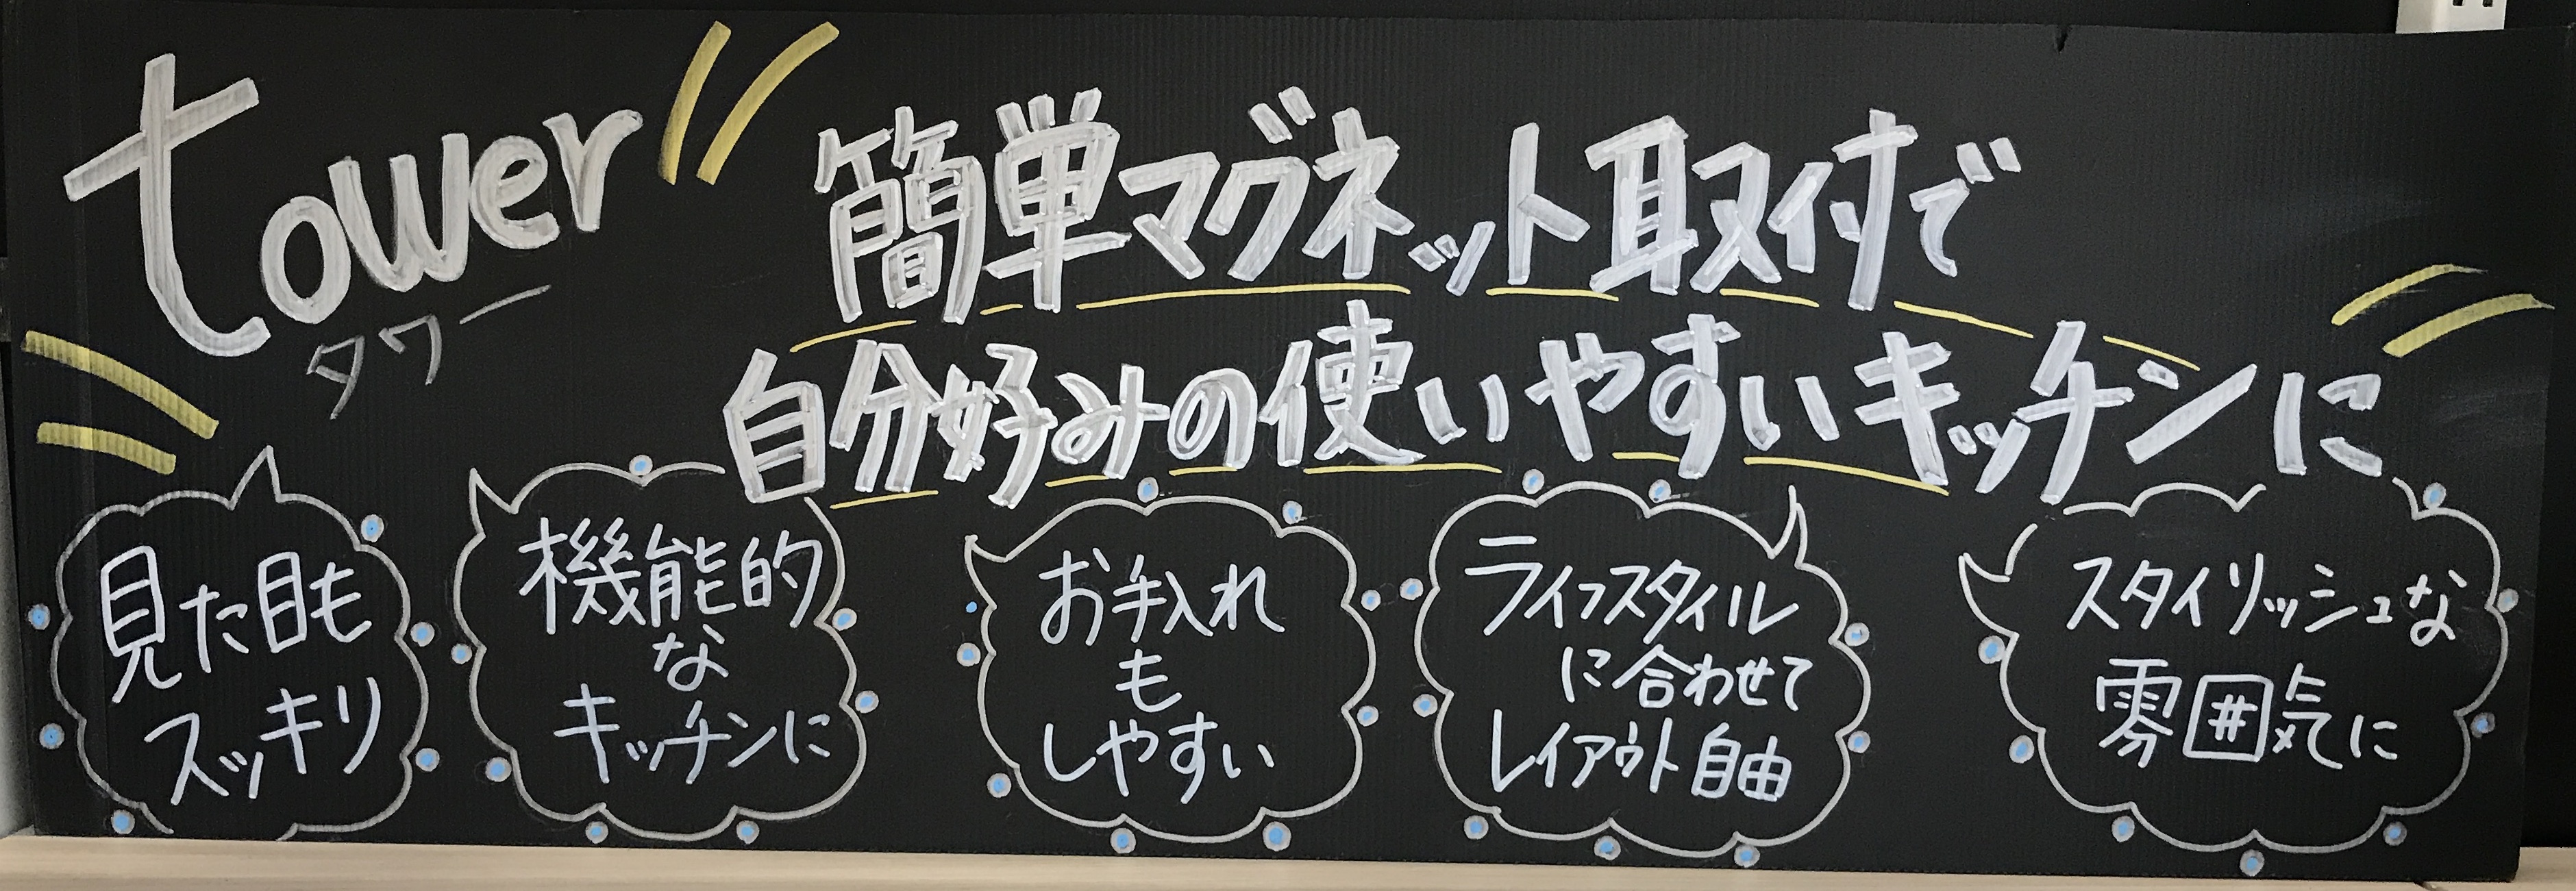 tower
タワー
簡単マグネット取付で
自分好みの使いやすいキッチンに
見た目も
スッキリ
機能的
な
キッチンに
お手入れ
も
しやすい
ライフスタイル
に合わせて
レイアウト自由
スタイリッシュな
雰囲気に